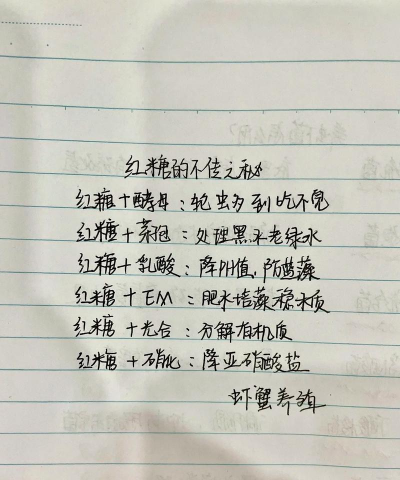 红糖的不传之秘
红糖+酵母：轮虫多到吃不完
红糖+芽孢：处理黑水老绿水
红糖+乳酸：降PH值，防蓝藻
红糖+EM：肥水培藻稳水质
红糖+光合：分解有机质
红糖+硝化：降亚硝酸盐
虾蟹养殖